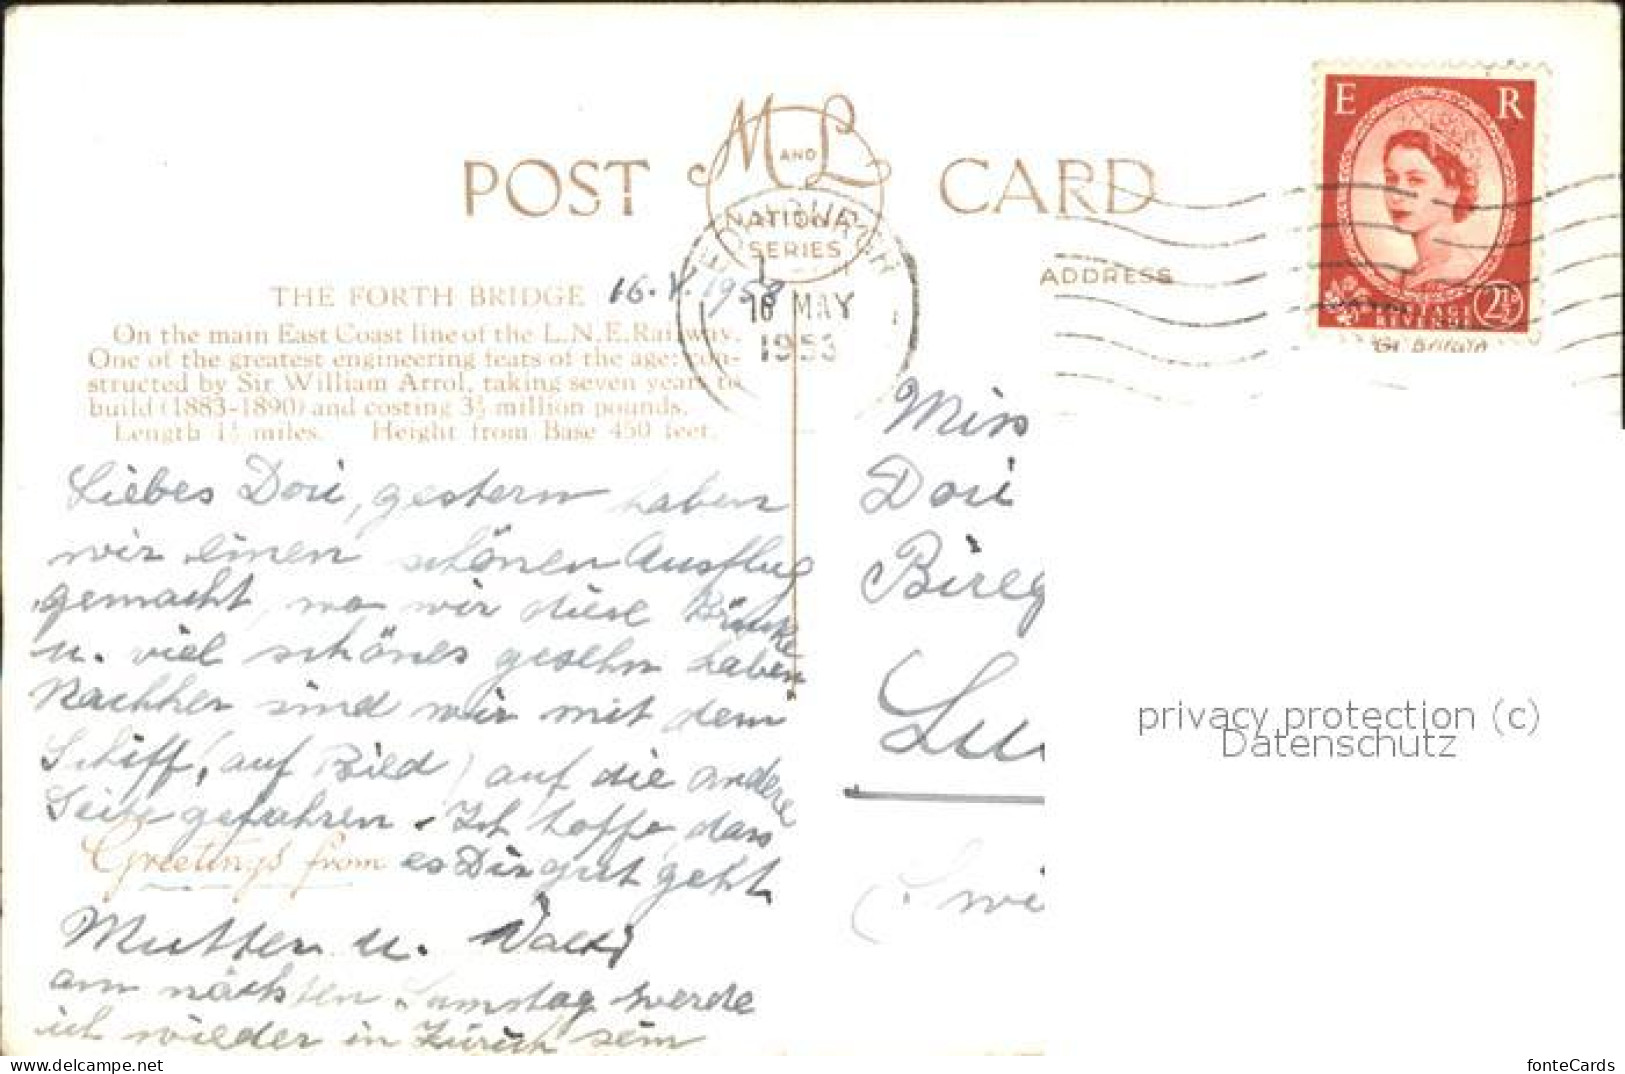 POST M AND L CARD
NATIONAL
SERIES
E R
POSTAGE
REVENUE
2½D
Gt Britain
ADDRESS
EDINBURGH
16 MAY
1953
THE FORTH BRIDGE 16. V. 1953
On the main East Coast line of the L.N.E.Railway.
One of the greatest engineering feats of the age: con-
structed by Sir William Arrol, taking seven years to
build (1883-1890) and costing 3½ million pounds.
Length 1½ miles. Height from Base 450 feet.
Liebes Dori, gestern haben
wir einen schönen Ausflug
gemacht, wo wir diese Brücke
u. viel schönes gesehn haben
Nachher sind wir mit dem
Schiff, (auf Bild) auf die andere
Seite gefahren. Ich hoffe, dass
Greetings from es Dir gut geht
Mutter u.
am nächsten Samstag werde
ich wieder in Zürich sein
Miss
Dori
Bireg
Lu
Swi
privacy protection (c)
Datenschutz
fonteCards